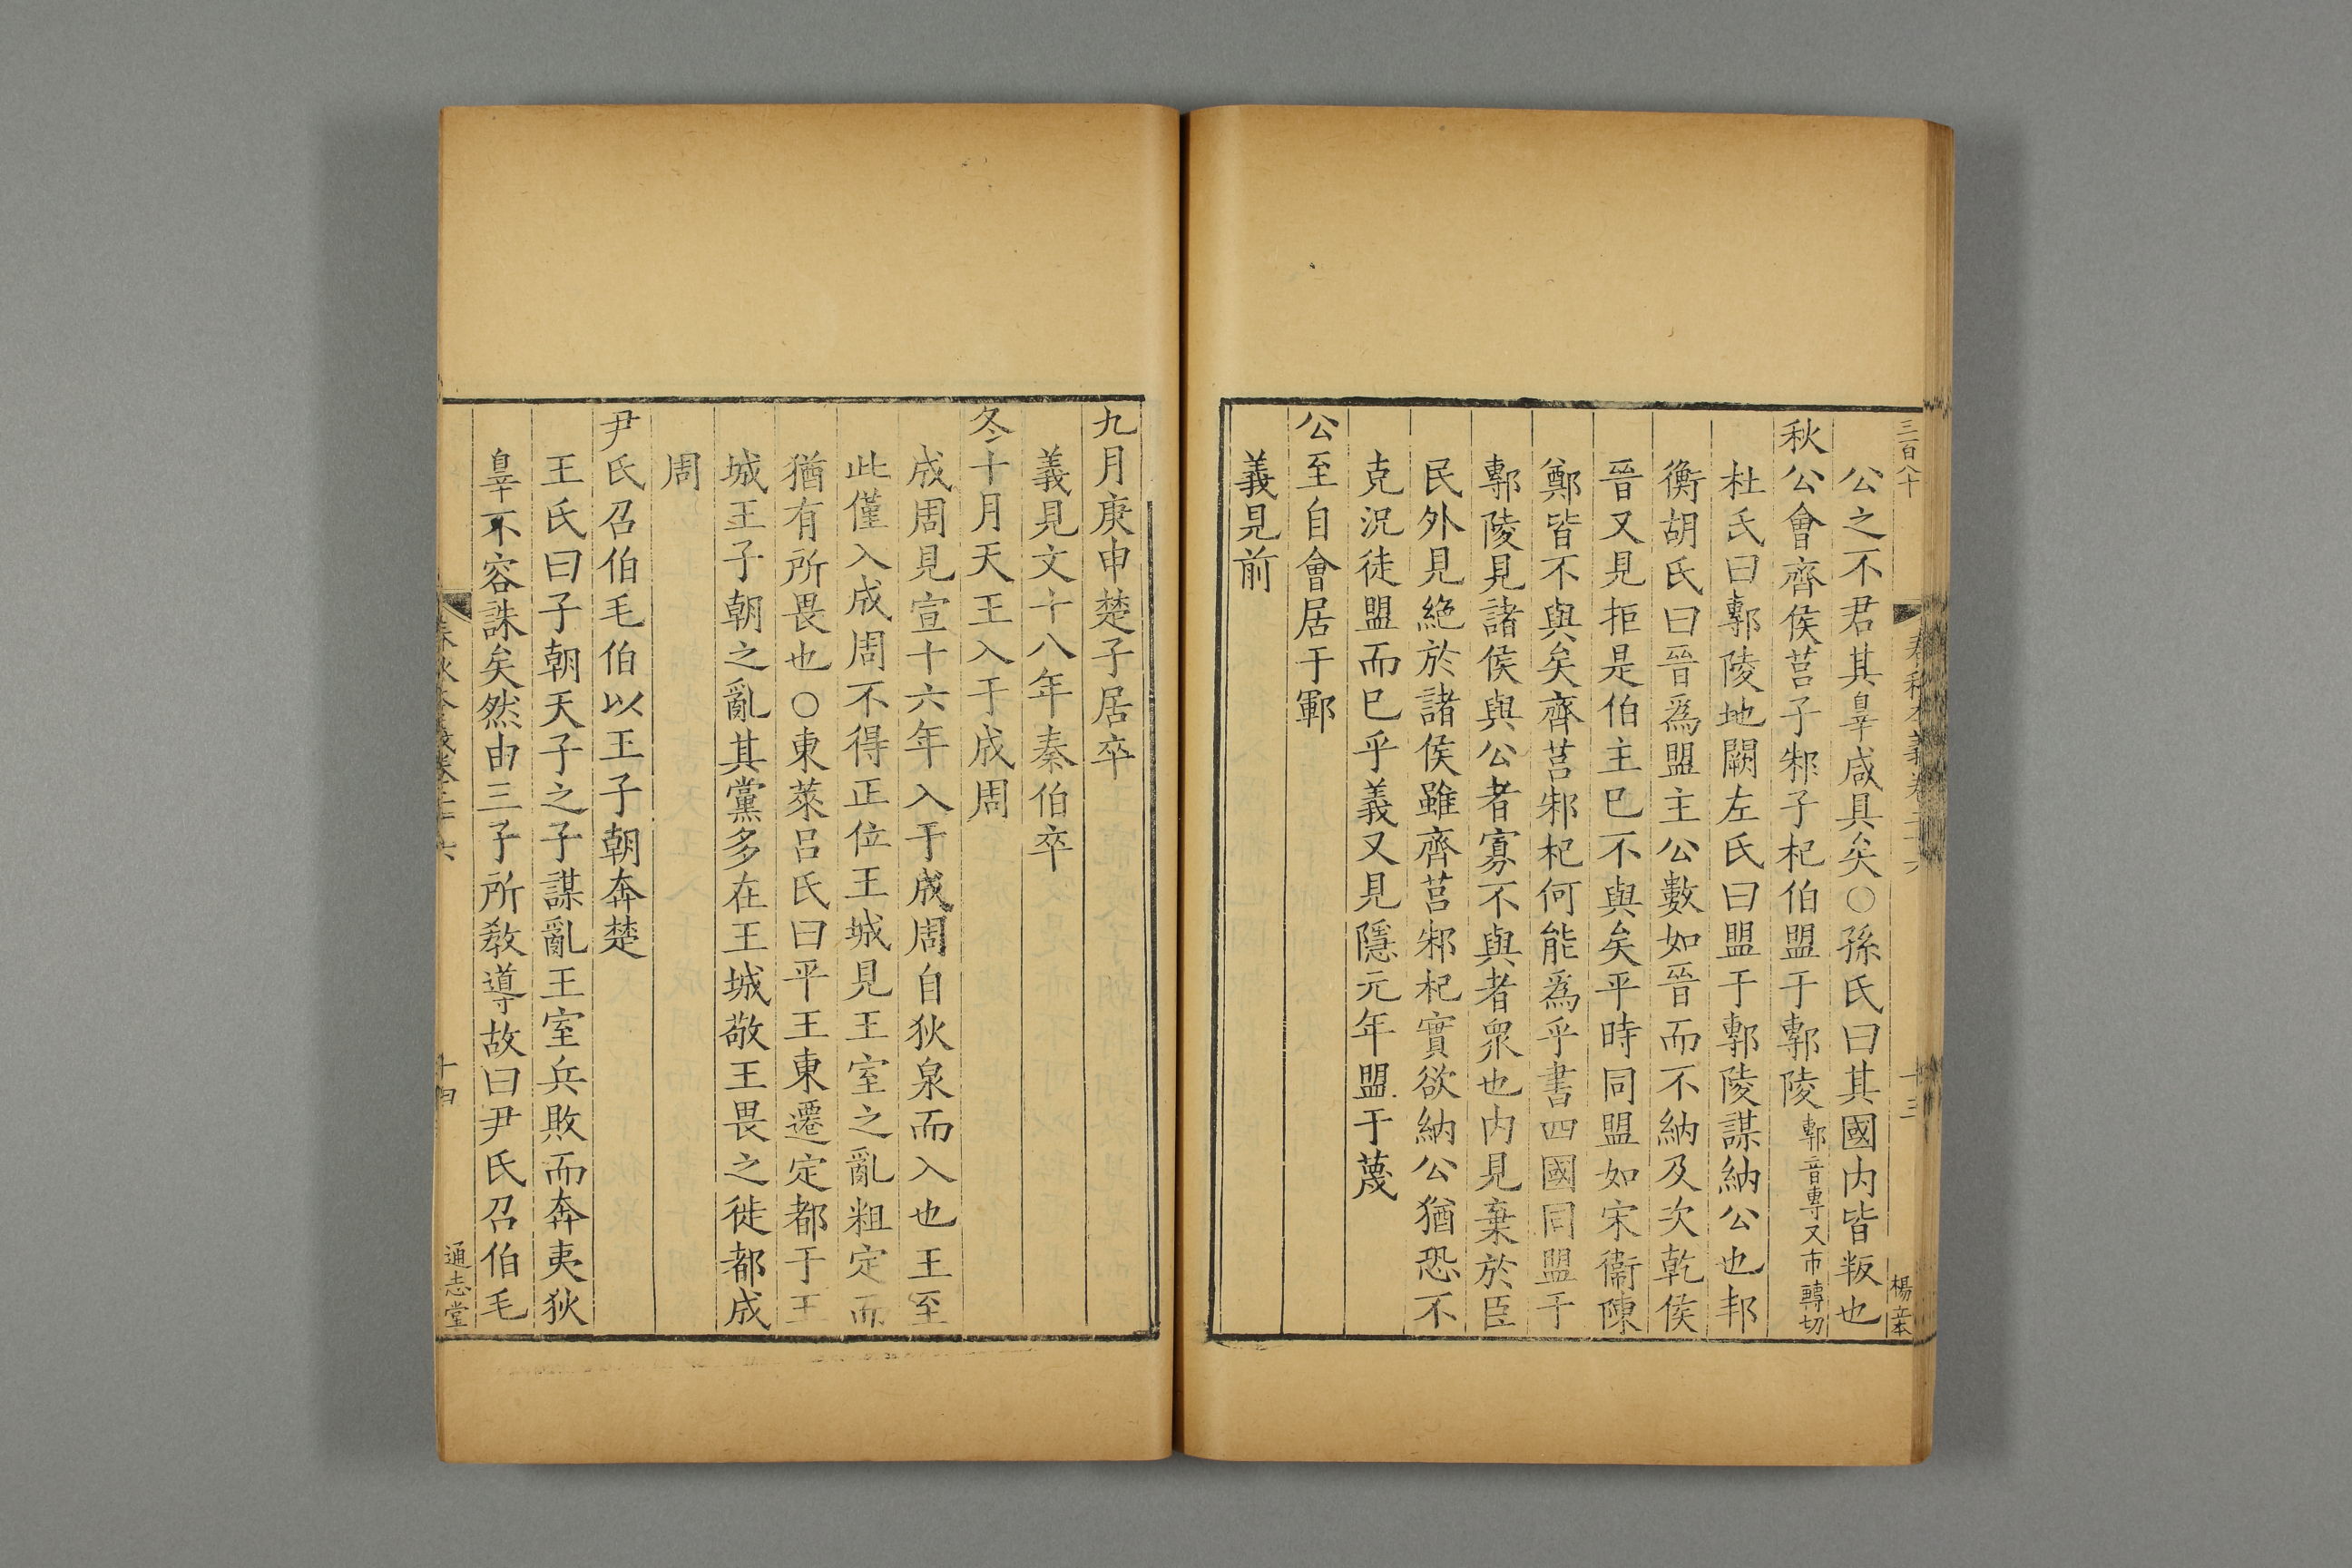 三百八十
春秋本義卷二十六
十三
楊章
公之不君其辠咸具矣○孫氏曰其國内皆叛也
秋公會齊侯莒子邾子杞伯盟于鄟陵鄟音專又市轉切
杜氏曰鄟陵地闕左氏曰盟于鄟陵謀納公也邦
衡胡氏曰晉爲盟主公數如晉而不納及次乾侯
晉又見拒是伯主已不與矣平時同盟如宋衞陳
鄭皆不與矣齊莒邾杞何能爲乎書四國同盟于
鄟陵見諸侯與公者寡不與者衆也内見棄於臣
民外見絶於諸侯雖齊莒邾杞實欲納公猶恐不
克況徒盟而已乎義又見隱元年盟于蔑
公至自會居于鄆
義見前
九月庚申楚子居卒
義見文十八年秦伯卒
冬十月天王入于成周
成周見宣十六年入于成周自狄泉而入也王至
此僅入成周不得正位王城見王室之亂粗定而
猶有所畏也○東萊呂氏曰平王東遷定都于王
城王子朝之亂其黨多在王城敬王畏之徙都成
周
尹氏召伯毛伯以王子朝奔楚
王氏曰子朝天子之子謀亂王室兵敗而奔夷狄
辠不容誅矣然由三子所教導故曰尹氏召伯毛
春秋本義卷二十六
十四
通志堂